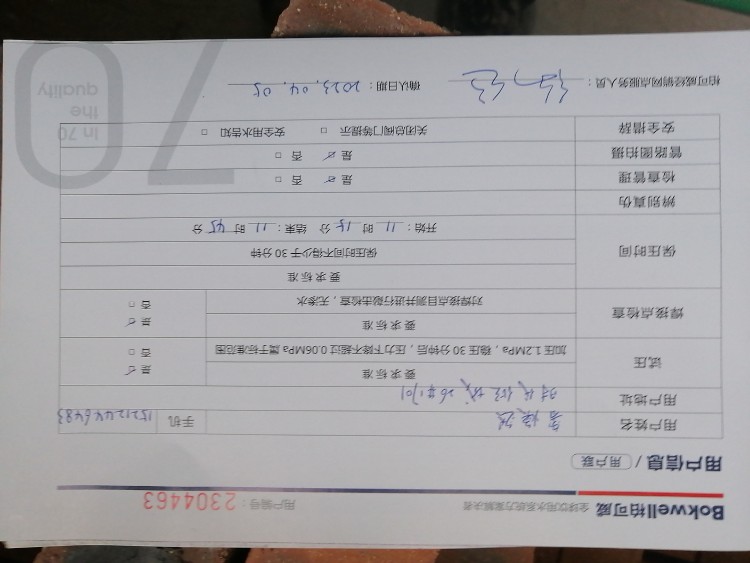 Bokwell柏可威 全球饮用水系统方案解决者 用户编号：2304463
用户信息 / 用户联
用户姓名 手机 15212446483
用户地址 时代倾城 26#1701
试压 要求标准 是 ☑
加压1.2MPa，稳压，30分钟后，压力下降不超过0.06MPa属于标准范围 否 □
焊接点检查 要求标准 是 ☑
对焊接点目测并进行敲击检查，无渗水 否 □
保压时间 要求标准
保压时间不得少于30分钟
开始：11 时 15 分 结束：11 时 45 分
辨别真伪
检查管理 是 ☑ 否 □
管路图拍摄 是 ☑ 否 □
安全措辞 关闭总阀门等提示 □ 安全用水告知 □
柏可威经销网点服务人员： 确认日期：2023.04.05
In 70
the
quality
70